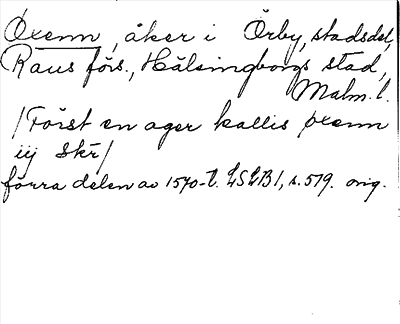 Öxenn, åker i Örby, stadsdel,
Raus förs., Hälsingborgs stad,
Malm. l.
/Först en ager kallis øxenn
iij Skr/
förra delen av 1570-t. LSLB 1, s. 519. orig.